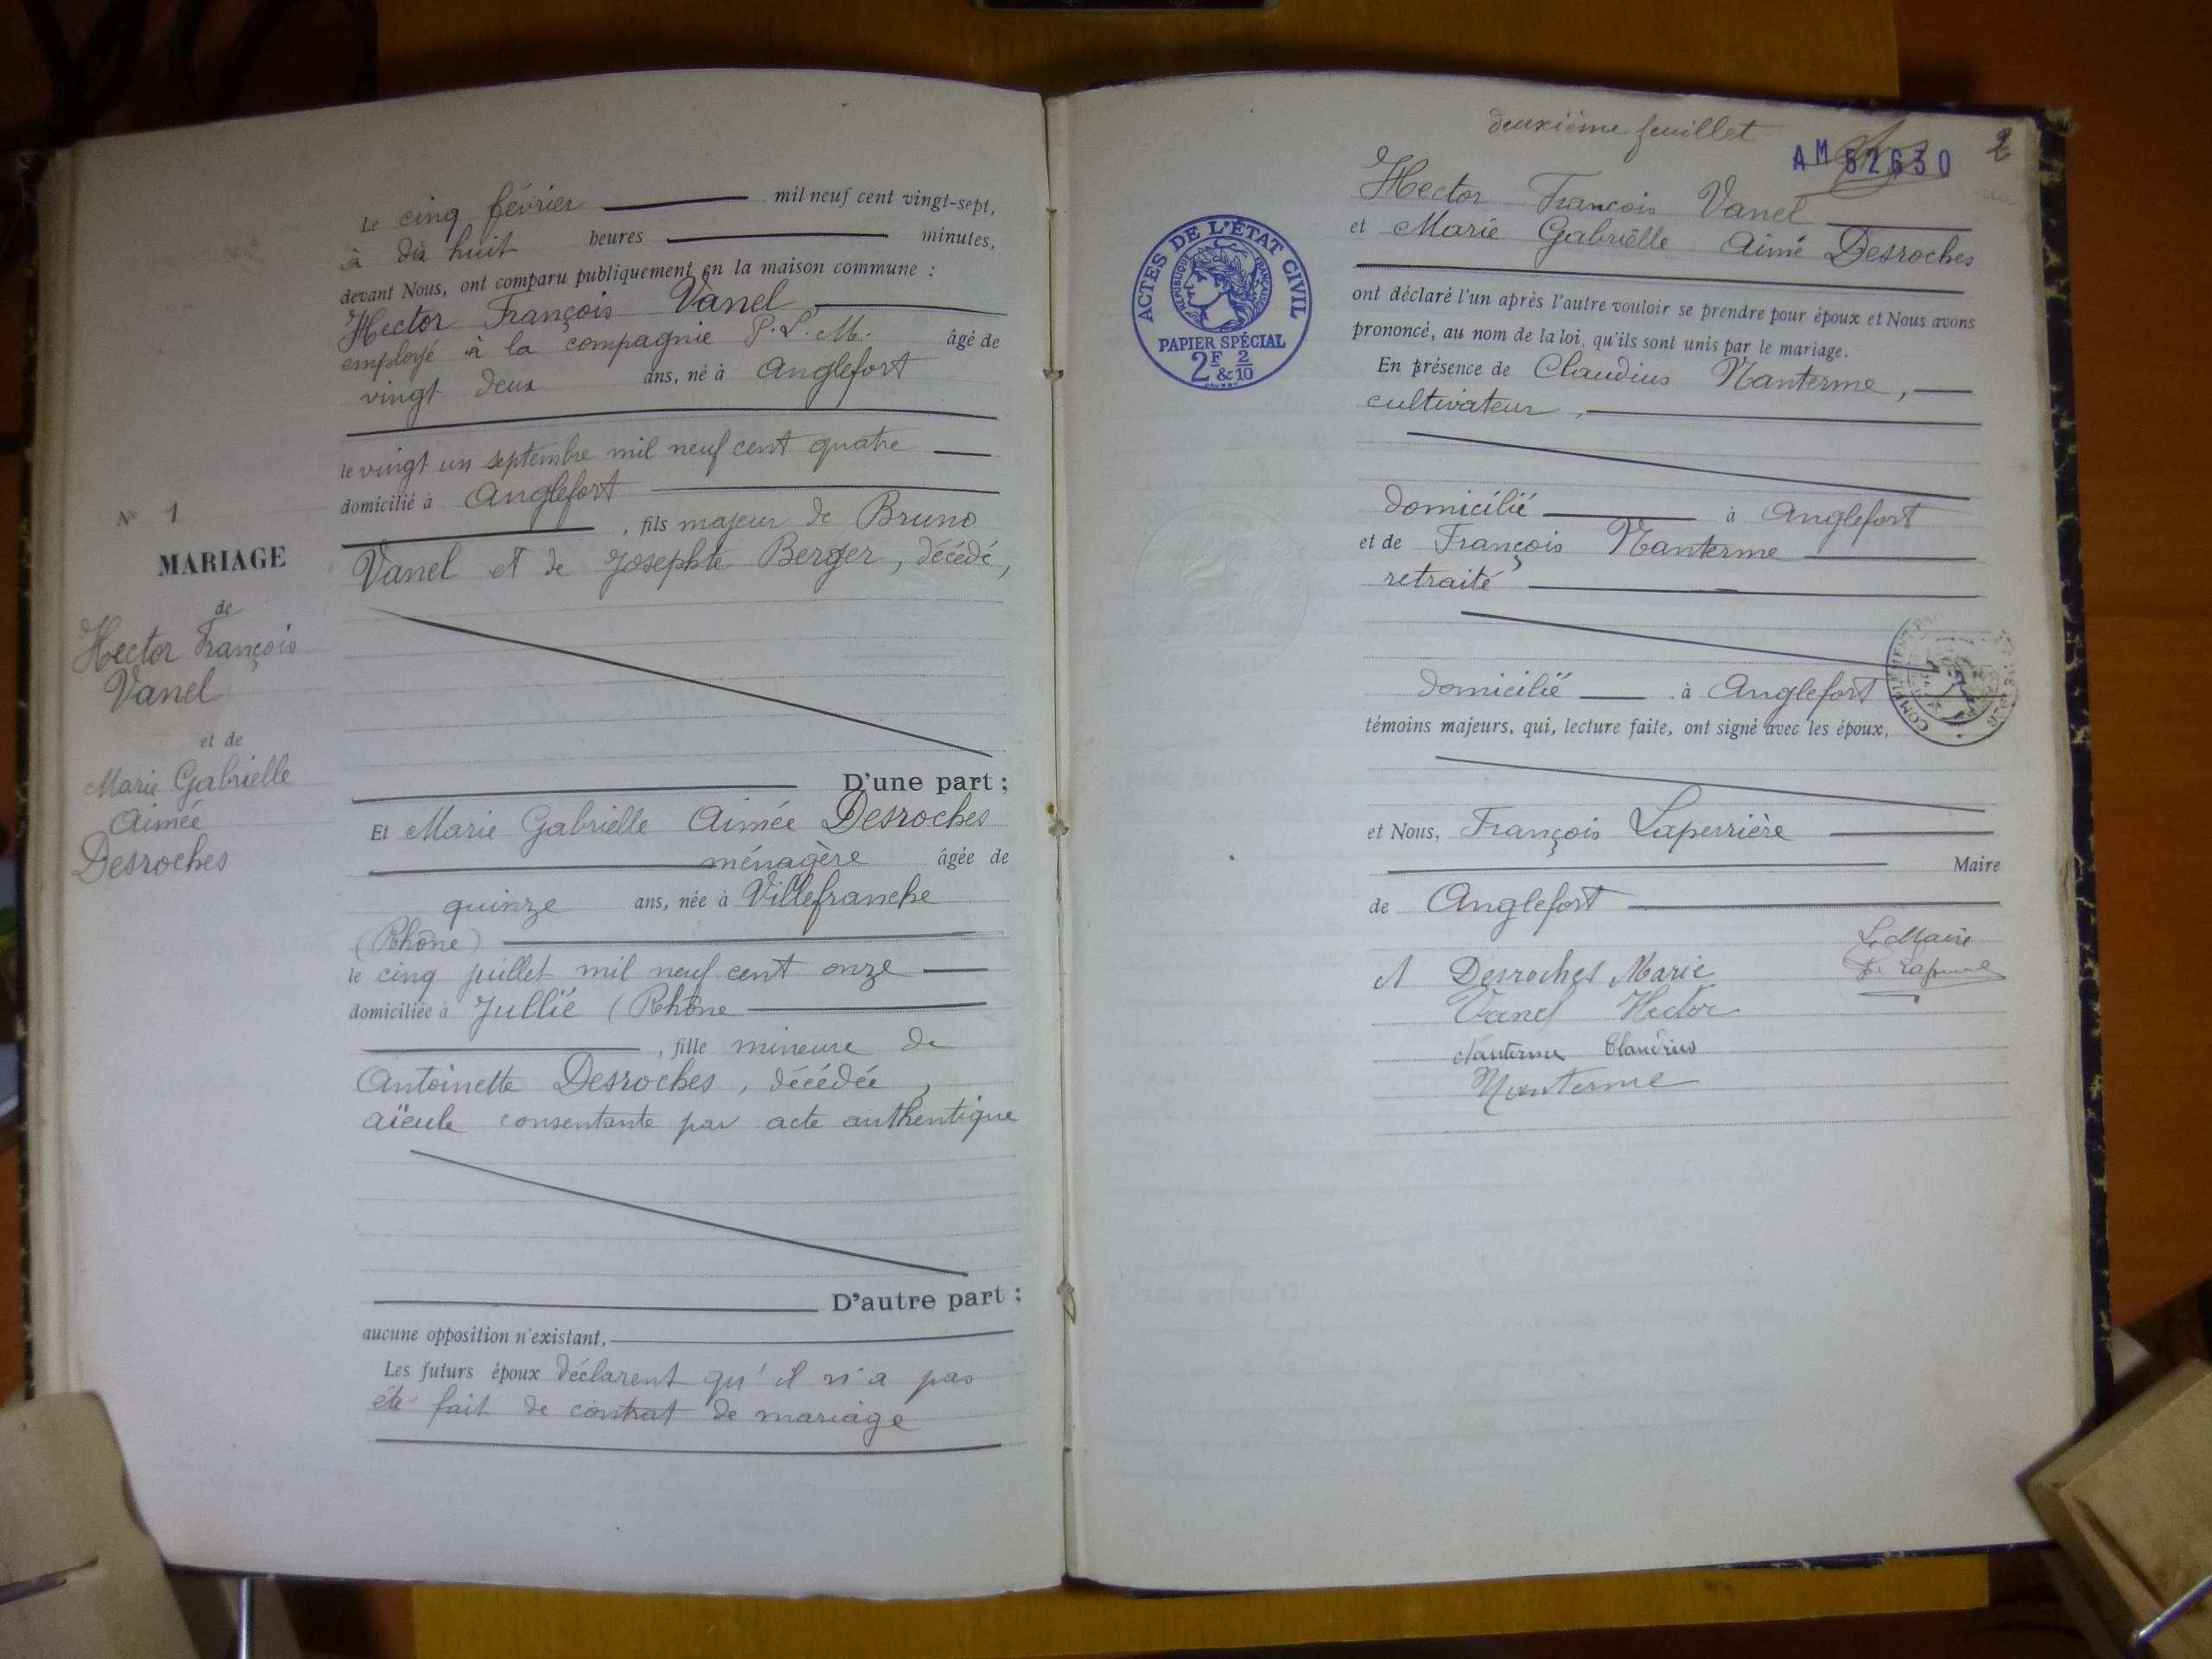 N° 1
MARIAGE
de
Hector François
Vanel
et de
Marie Gabrielle
Aimée
Desroches
Le cinq février mil neuf cent vingt-sept,
à dix huit heures minutes,
devant Nous, ont comparu publiquement en la maison commune :
Hector François Vanel
employé à la compagnie P. L. M. âgé de
vingt deux ans, né à Anglefort
le vingt un septembre mil neuf cent quatre
domicilié à Anglefort
, fils majeur de Bruno
Vanel et de Josephte Berger, décédé,
D'une part ;
Et Marie Gabrielle Aimée Desroches
ménagère âgée de
quinze ans, née à Villefranche
(Rhône)
le cinq juillet mil neuf cent onze
domiciliée à Jullié (Rhône
, fille mineure de
Antoinette Desroches, décédée,
aïeule consentante par acte authentique
D'autre part ;
aucune opposition n'existant,
Les futurs époux déclarent qu'il n'a pas
été fait de contrat de mariage
deuxième feuillet
AM 52630 2
Hector François Vanel
et Marie Gabriëlle Aimé Desroches
ACTES DE L'ÉTAT CIVIL
RÉPUBLIQUE FRANÇAISE
PAPIER SPÉCIAL
2F & 2/10
ont déclaré l'un après l'autre vouloir se prendre pour époux et Nous avons
prononcé, au nom de la loi, qu'ils sont unis par le mariage.
En présence de Claudius Nanterme,
cultivateur,
domicilié à Anglefort
et de François Nanterme
retraité
domicilié à Anglefort
témoins majeurs, qui, lecture faite, ont signé avec les époux,
et Nous, François Laperrière
Maire
de Anglefort
Le Maire
Desroches Marie
Vanel Hector
Nanterme Claudius
Nanterme